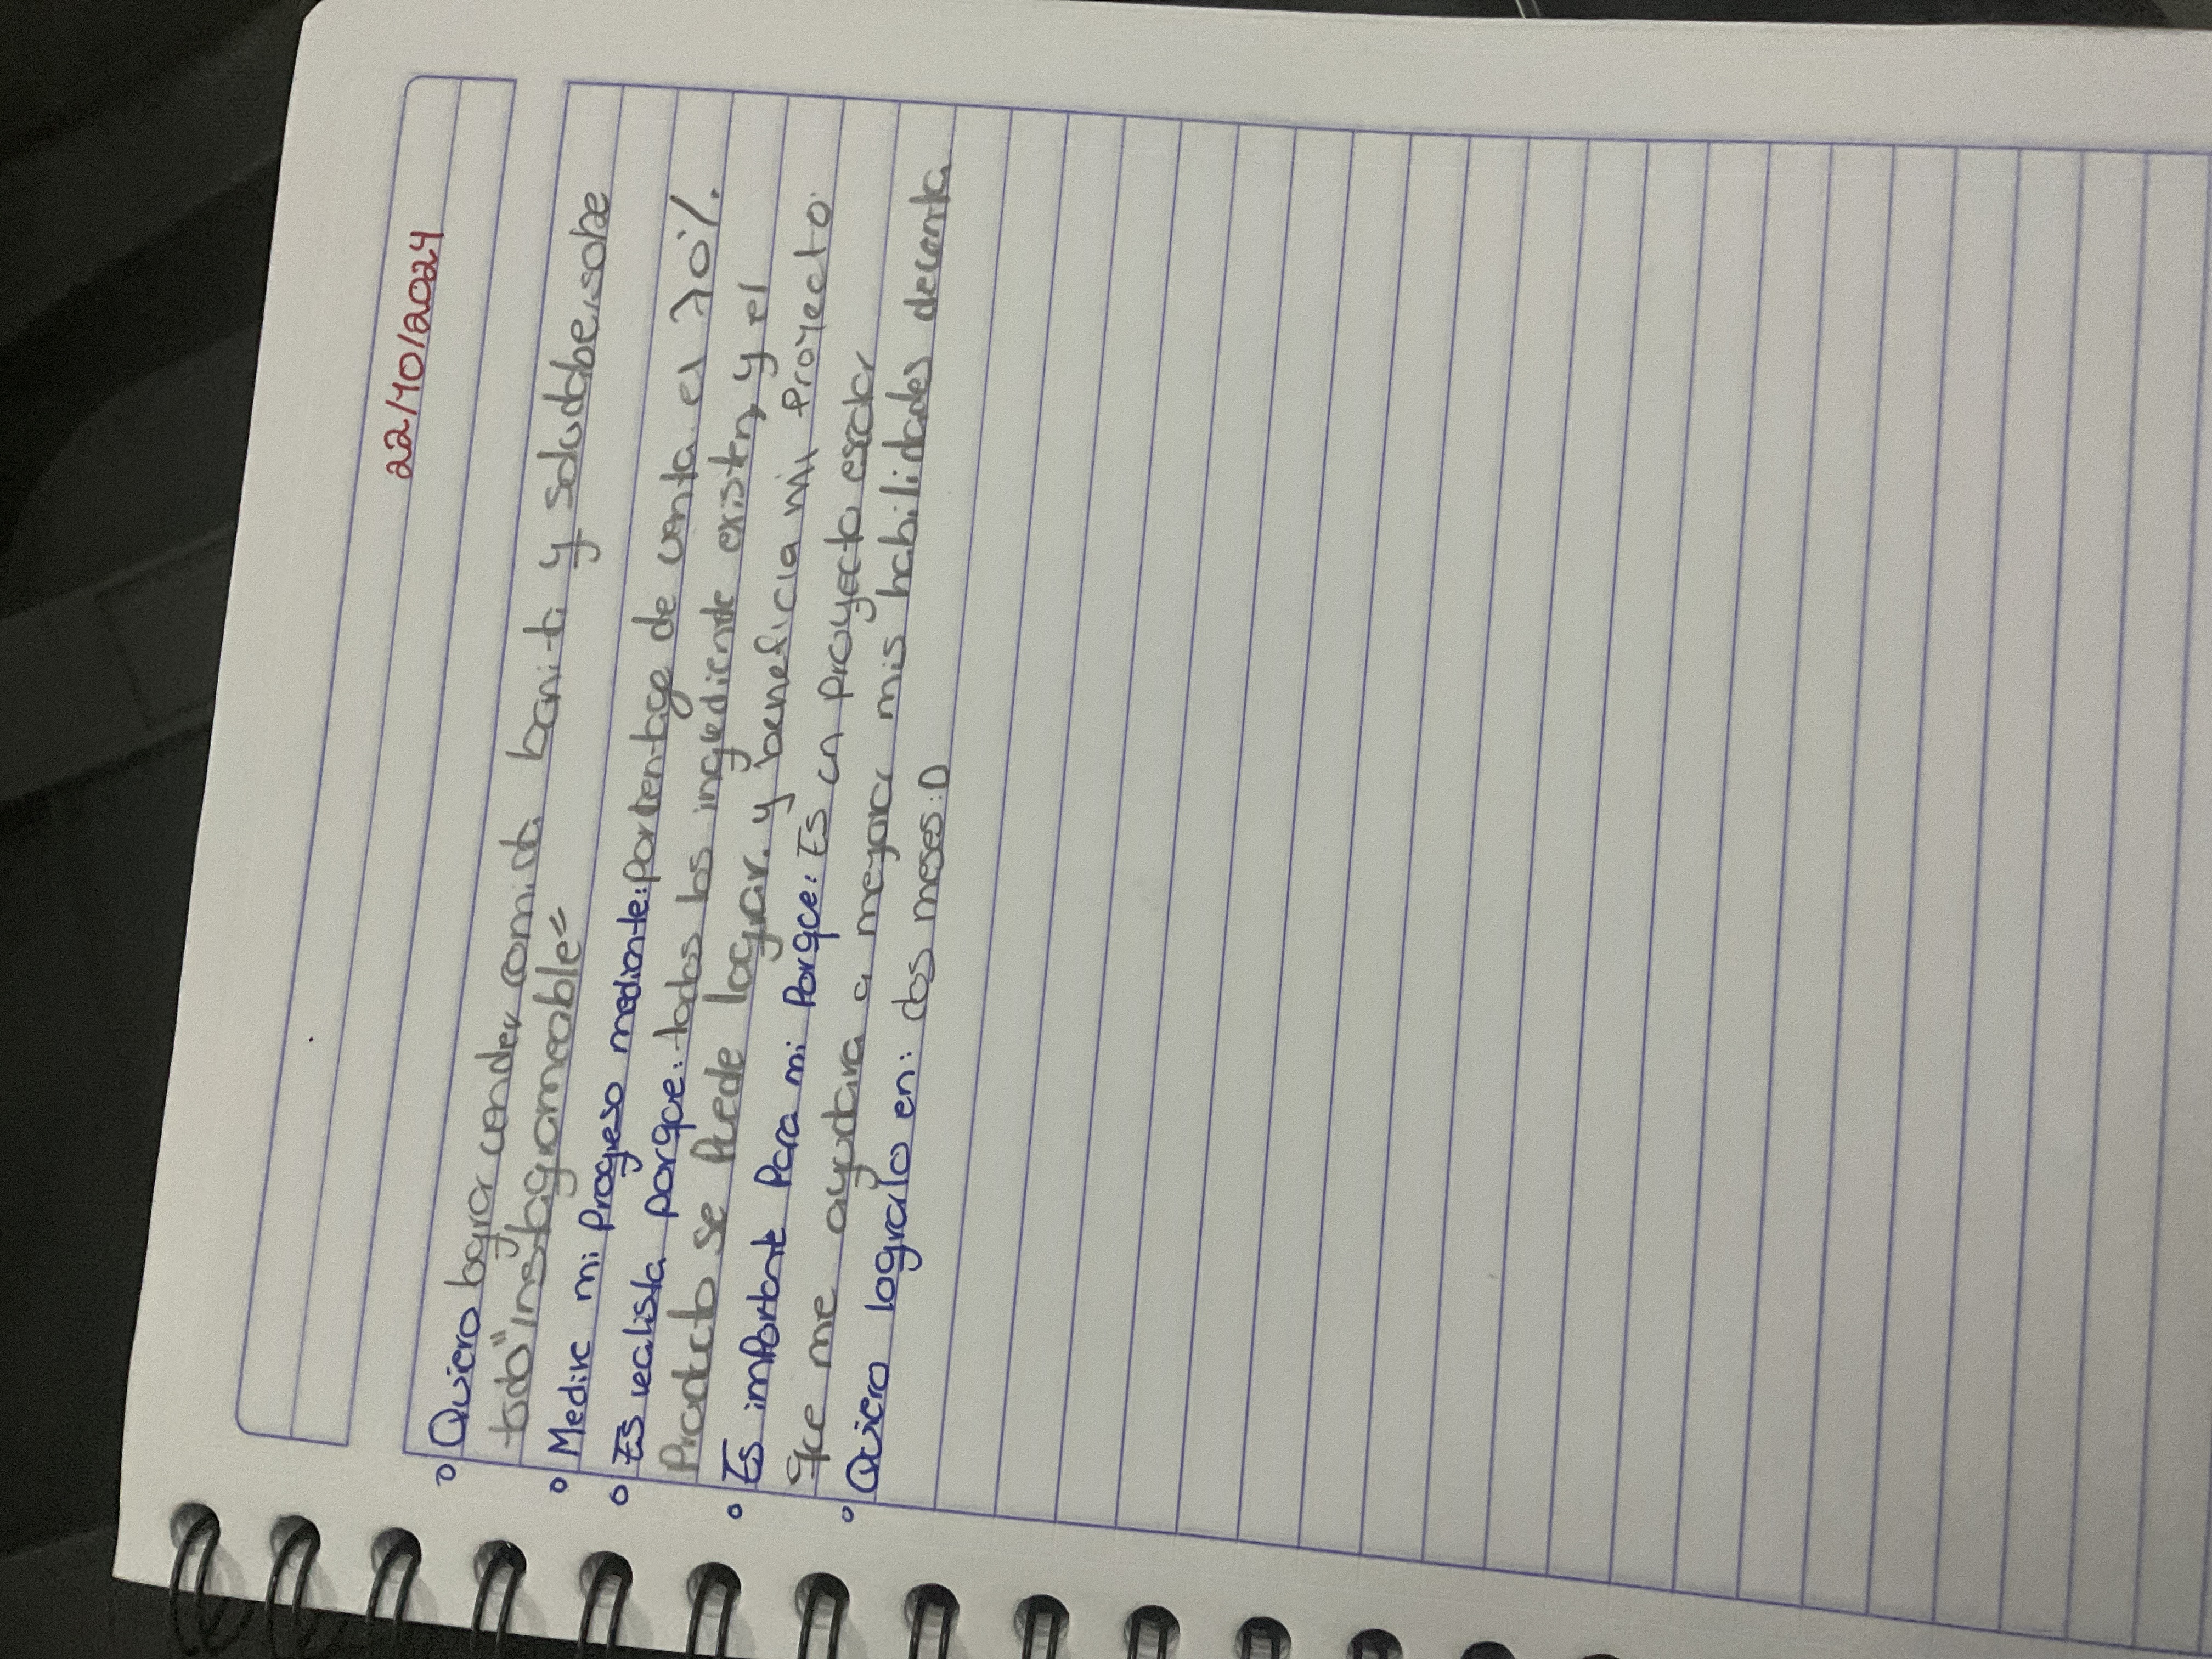 22/10/2024
Quiero lograr vender comida bonita y saludable, sobre
todo "Instagrameable"
Medire mi Progreso mediante: porcentage de venta el 70%.
Es realista porque: todos los ingrediente existen, y el
Producto se Puede lograr. y beneficia mi Proyecto.
Es importante Para mi Porque: Es un proyecto escolar
que me ayudara a mejorar mis habilidades de venta
Quiero lograrlo en: dos meses :D